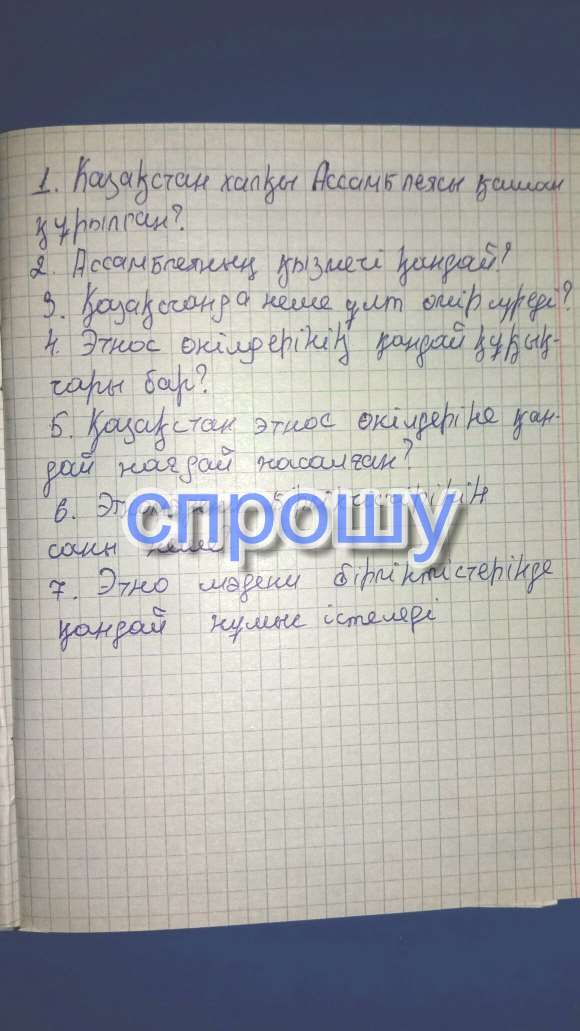 1. Қазақстан халқы Ассамблеясы қашан
құрылған?
2. Ассамблеяның қызметі қандай?
3. Қазақстанда неше ұлт өмір сүреді?
4. Этнос өкілдерінің қандай құқық-
тары бар?
5. Қазақстан этнос өкілдеріне қан-
дай жағдай жасалған?
6.
спрошу
саны
7. Этно мәдени бірлістістерінде
қандай жұмыс істеледі